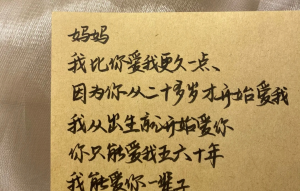 妈妈
我比你爱我更久一点、
因为你从二十多岁才开始爱我
我从出生就开始爱你
你只能爱我五六十年
我能爱你一辈子